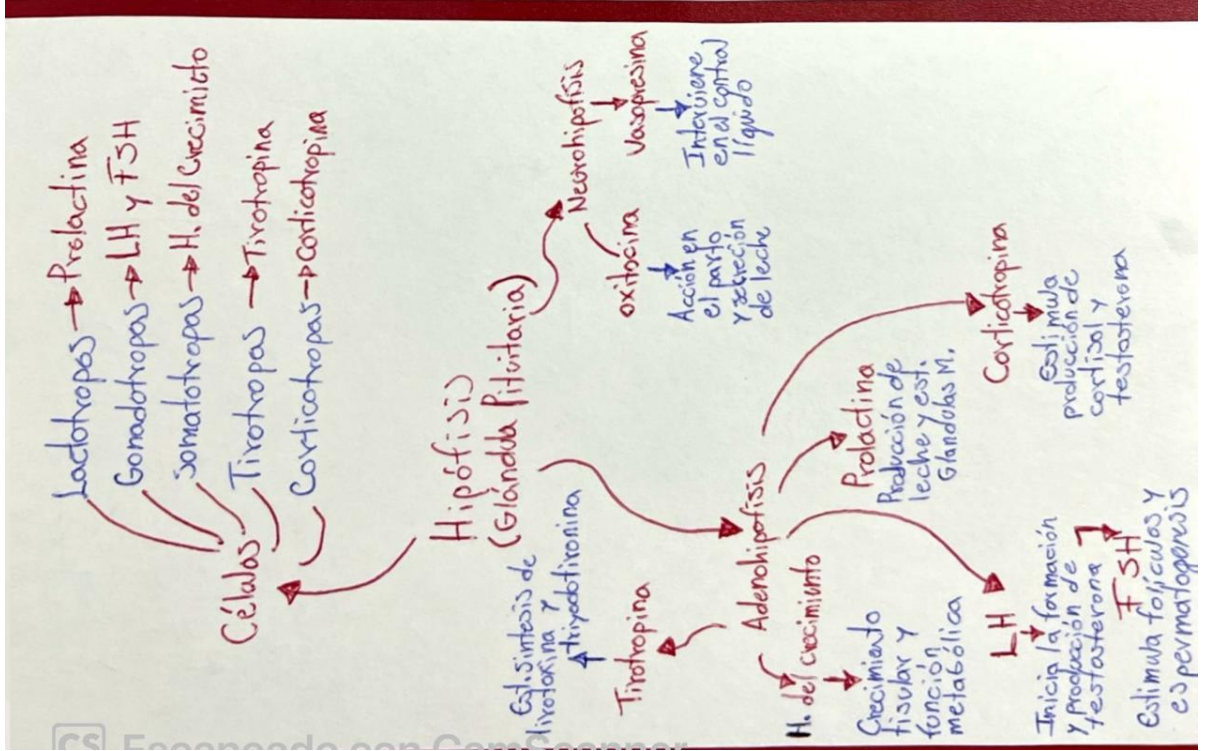 Lactotropas → Prolactina
Gonadotropas → LH y FSH
Somatotropas → H. del Crecimieto
Tirotropas → Tirotropina
Corticotropas → Corticotropina
Células
Hipófisis
(Glándula Pituitaria)
Neurohipófisis
oxitocina
Acción en
el parto
y secreción
de leche
Vasopresina
Interviene
en el control
líquido
Adenohipofisis
Tirotropina
Est. sintesis de
tirotoxina y
triyodotironina
H. del Crecimiento
Crecimiento
tisular y
función
metabólica
LH
Inicia la formación
y producción de
testosterona
FSH
Estimula folículos y
espermatogenesis
Prolactina
Producción de
leche y esti.
Glandulas M.
Corticotropina
Estimula
producción de
cortisol y
testosterona
CS Escaneado con CamScanner